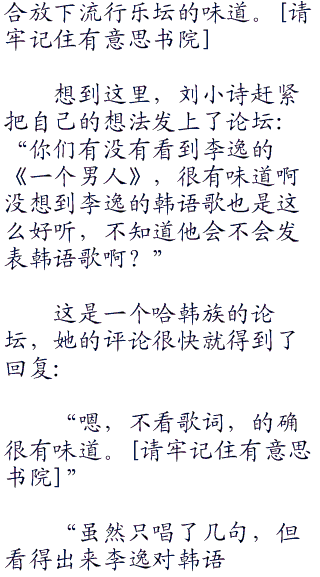 合放下流行乐坛的味道。[请
牢记住有意思书院]
想到这里，刘小诗赶紧
把自己的想法发上了论坛：
“你们有没有看到李逸的
《一个男人》，很有味道啊
没想到李逸的韩语歌也是这
么好听，不知道他会不会发
表韩语歌啊？”
这是一个哈韩族的论
坛，她的评论很快就得到了
回复：
“嗯，不看歌词，的确
很有味道。[请牢记住有意思
书院]”
“虽然只唱了几句，但
看得出来李逸对韩语